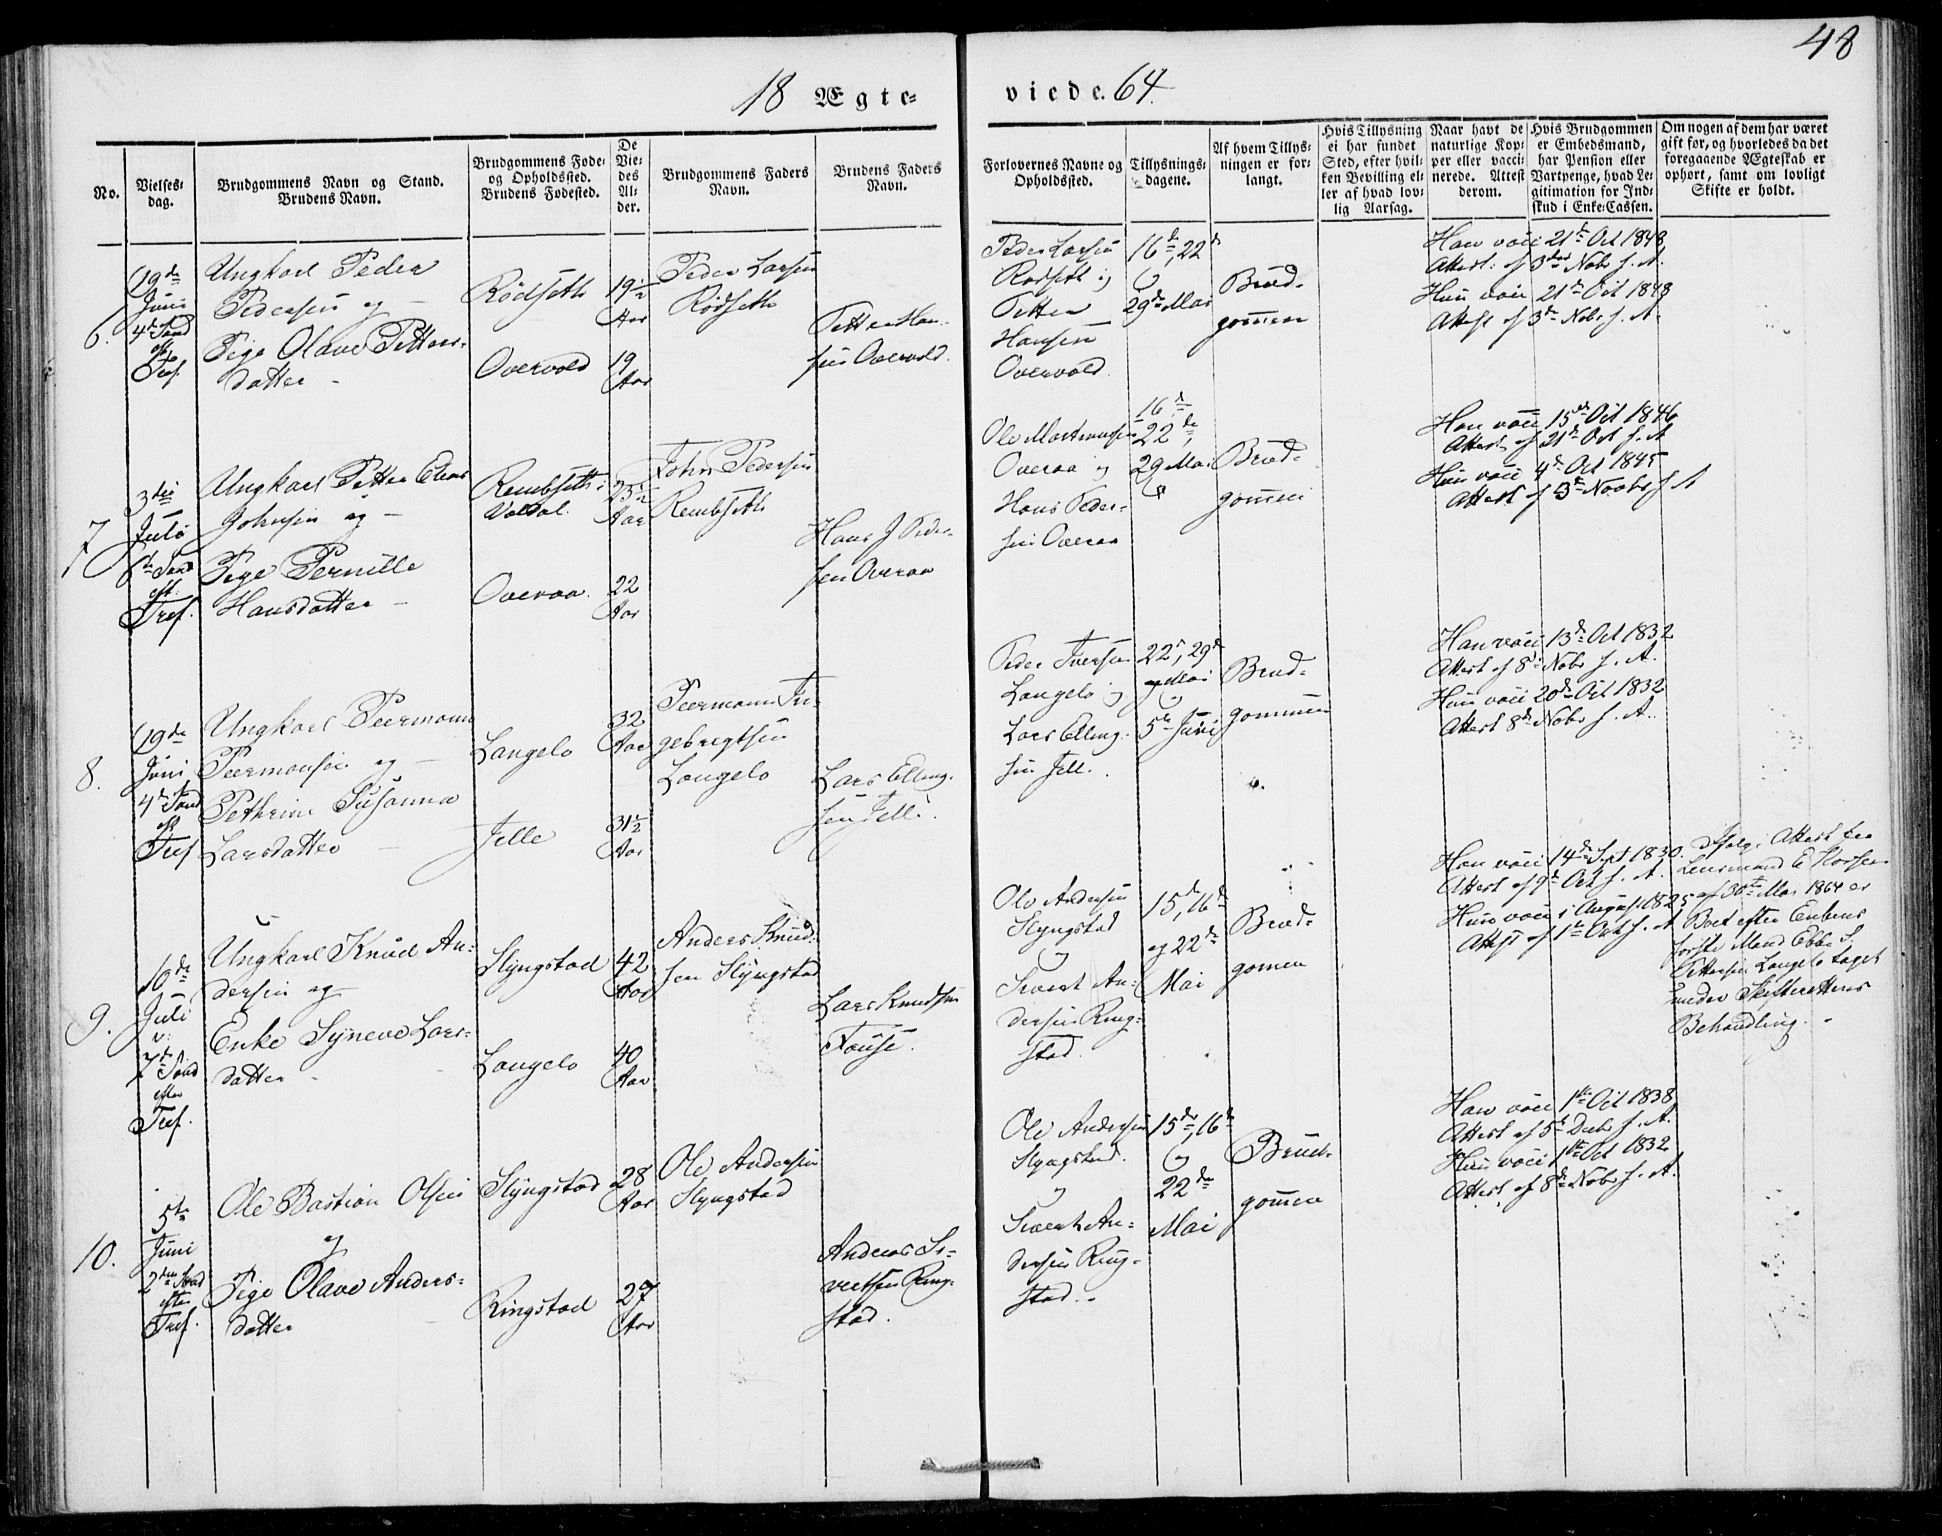 48
18 Ægte-
viede. 64.
No.
Vielses-
dag.
Brudgommens Navn og Stand.
Brudens Navn.
Brudgommens Føde-
og Opholdssted.
Brudens Fødested.
De
Vie-
des
Al-
der.
Brudgommens Faders
Navn.
Brudens Faders
Navn.
Forlovernes Navne og
Opholdssted.
Tillysnings-
dagene.
Af hvem Tillys-
ningen er for-
langt.
Hvis Tillysning
ei har fundet
Sted, efter hvil-
ken Bevilling el-
ler af hvad lov-
lig Aarsag.
Naar havt de
naturlige Kop-
per eller vacci-
nerede. Attest
derom.
Hvis Brudgommen
er Embedsmand,
har Pension eller
Vartpenge, hvad Le-
gitimation for Ind-
skud i Enke-Cassen.
Om nogen af dem har været
gift før, og hvorledes da det
foregaaende Ægteskab er
ophørt, samt om lovligt
Skifte er holdt.
6.
19de
Juni
4de Sønd
eft.
Tref.
Ungkarl Peder
Pedersen og
Pige Olave Petters-
datter
Rödseth
Overvold
19½
Aar
19
Aar
Peder Larsen
Rödseth
Petter Han-
sen Overvold.
Peder Larsen
Rødseth og
Petter
Hansen
Overvold.
16de, 22de
og
29de Mai
Brud-
gommen
Han vacc. 21de Oct 1848
Attest: af 3die Nobr s. A.
Hun vacc. 21de Oct 1848
Attest af 3die Nobr s. A.
7
3die
Juli
6te Sønd
eft.
Tref.
Ungkarl Petter Elias
Johnsen og
Pige Pernille
Hansdatter
Rembseth i
Valdal.
Overaa.
23½
Aar
22
Aar
John Pedersen
Rembseth
Hans J Peder-
sen Overaa
Ole Martinussen
Overaa og
Hans Peder-
sen Overaa
16de
22de,
29 Mai
Brud-
gommen
Han vacc. 15de Oct 1846
Attest af 21de Oct s. A
Hun vacc. 4de Oct 1845
Attest af 3die Novbr s A
8.
19de
Juni
4de Sønd
eft
Tref
Ungkarl Peermann
Peermansen og
Pethrine Susanna
Larsdatter
Langelo
Jelle
32
Aar
31½
Aar
Peermann In-
gebregtsen
Langelo
Lars Elling-
sen Jelle.
Peder Iversen
Langelo og
Lars Elling-
sen Jelle.
22de, 29de
Mai
og
5te Juni
Brud-
gommen
Han vacc. 13de Oct 1832
Attest af 8de Nobr s. A.
Hun vacc. 20de Oct 1832
Attest 8de Nobr s. A.
9.
10de
Juli
7de Sønd
efter
Tref.
Ungkarl Knud An-
dersen og
Enke Syneve Lars-
datter
Slyngstad
Langelo
42
Aar
40
Aar
Anders Knud-
sen Slyngstad
Lars Knudsen
Fause.
Ole Andersen
Slyngstad
og
Sivert An-
dersen Ring-
stad.
15de, 16de
og 22de
Mai
Brud-
gomen
Han vacc. 14de Sept 1830.
Attest af 9de Oct s. A.
Hun vacc i August 1825
Attest af 1ste Octb s. A
Ifølge Attest fra
Lensmand E
af 30te Mai 1864 er
Boet efter Enkens
første Mand Ebbe S.
Pettersen Langelo taget
under Skifterettens
Behandling.
10.
5te
Juni
2den Sønd
efter
Tref.
Ole Bastian Olsen
og
Pige Olave Anders-
datter
Slyngstad
Ringstad
28
Aar
27
Aar
Ole Andersen
Slyngstad
Anders Si-
vertsen Ring-
stad.
Ole Andersen
Slyngstad.
og
Sivert An-
dersen Ring-
stad.
15de, 16de
og
22de
Mai
Brud-
gomen
Han vacc 1ste Oct 1838
Attest af 5te Decbr s. A.
Hun vacc 1ste Oct 1832
Attest af 8de Nobr s. A.